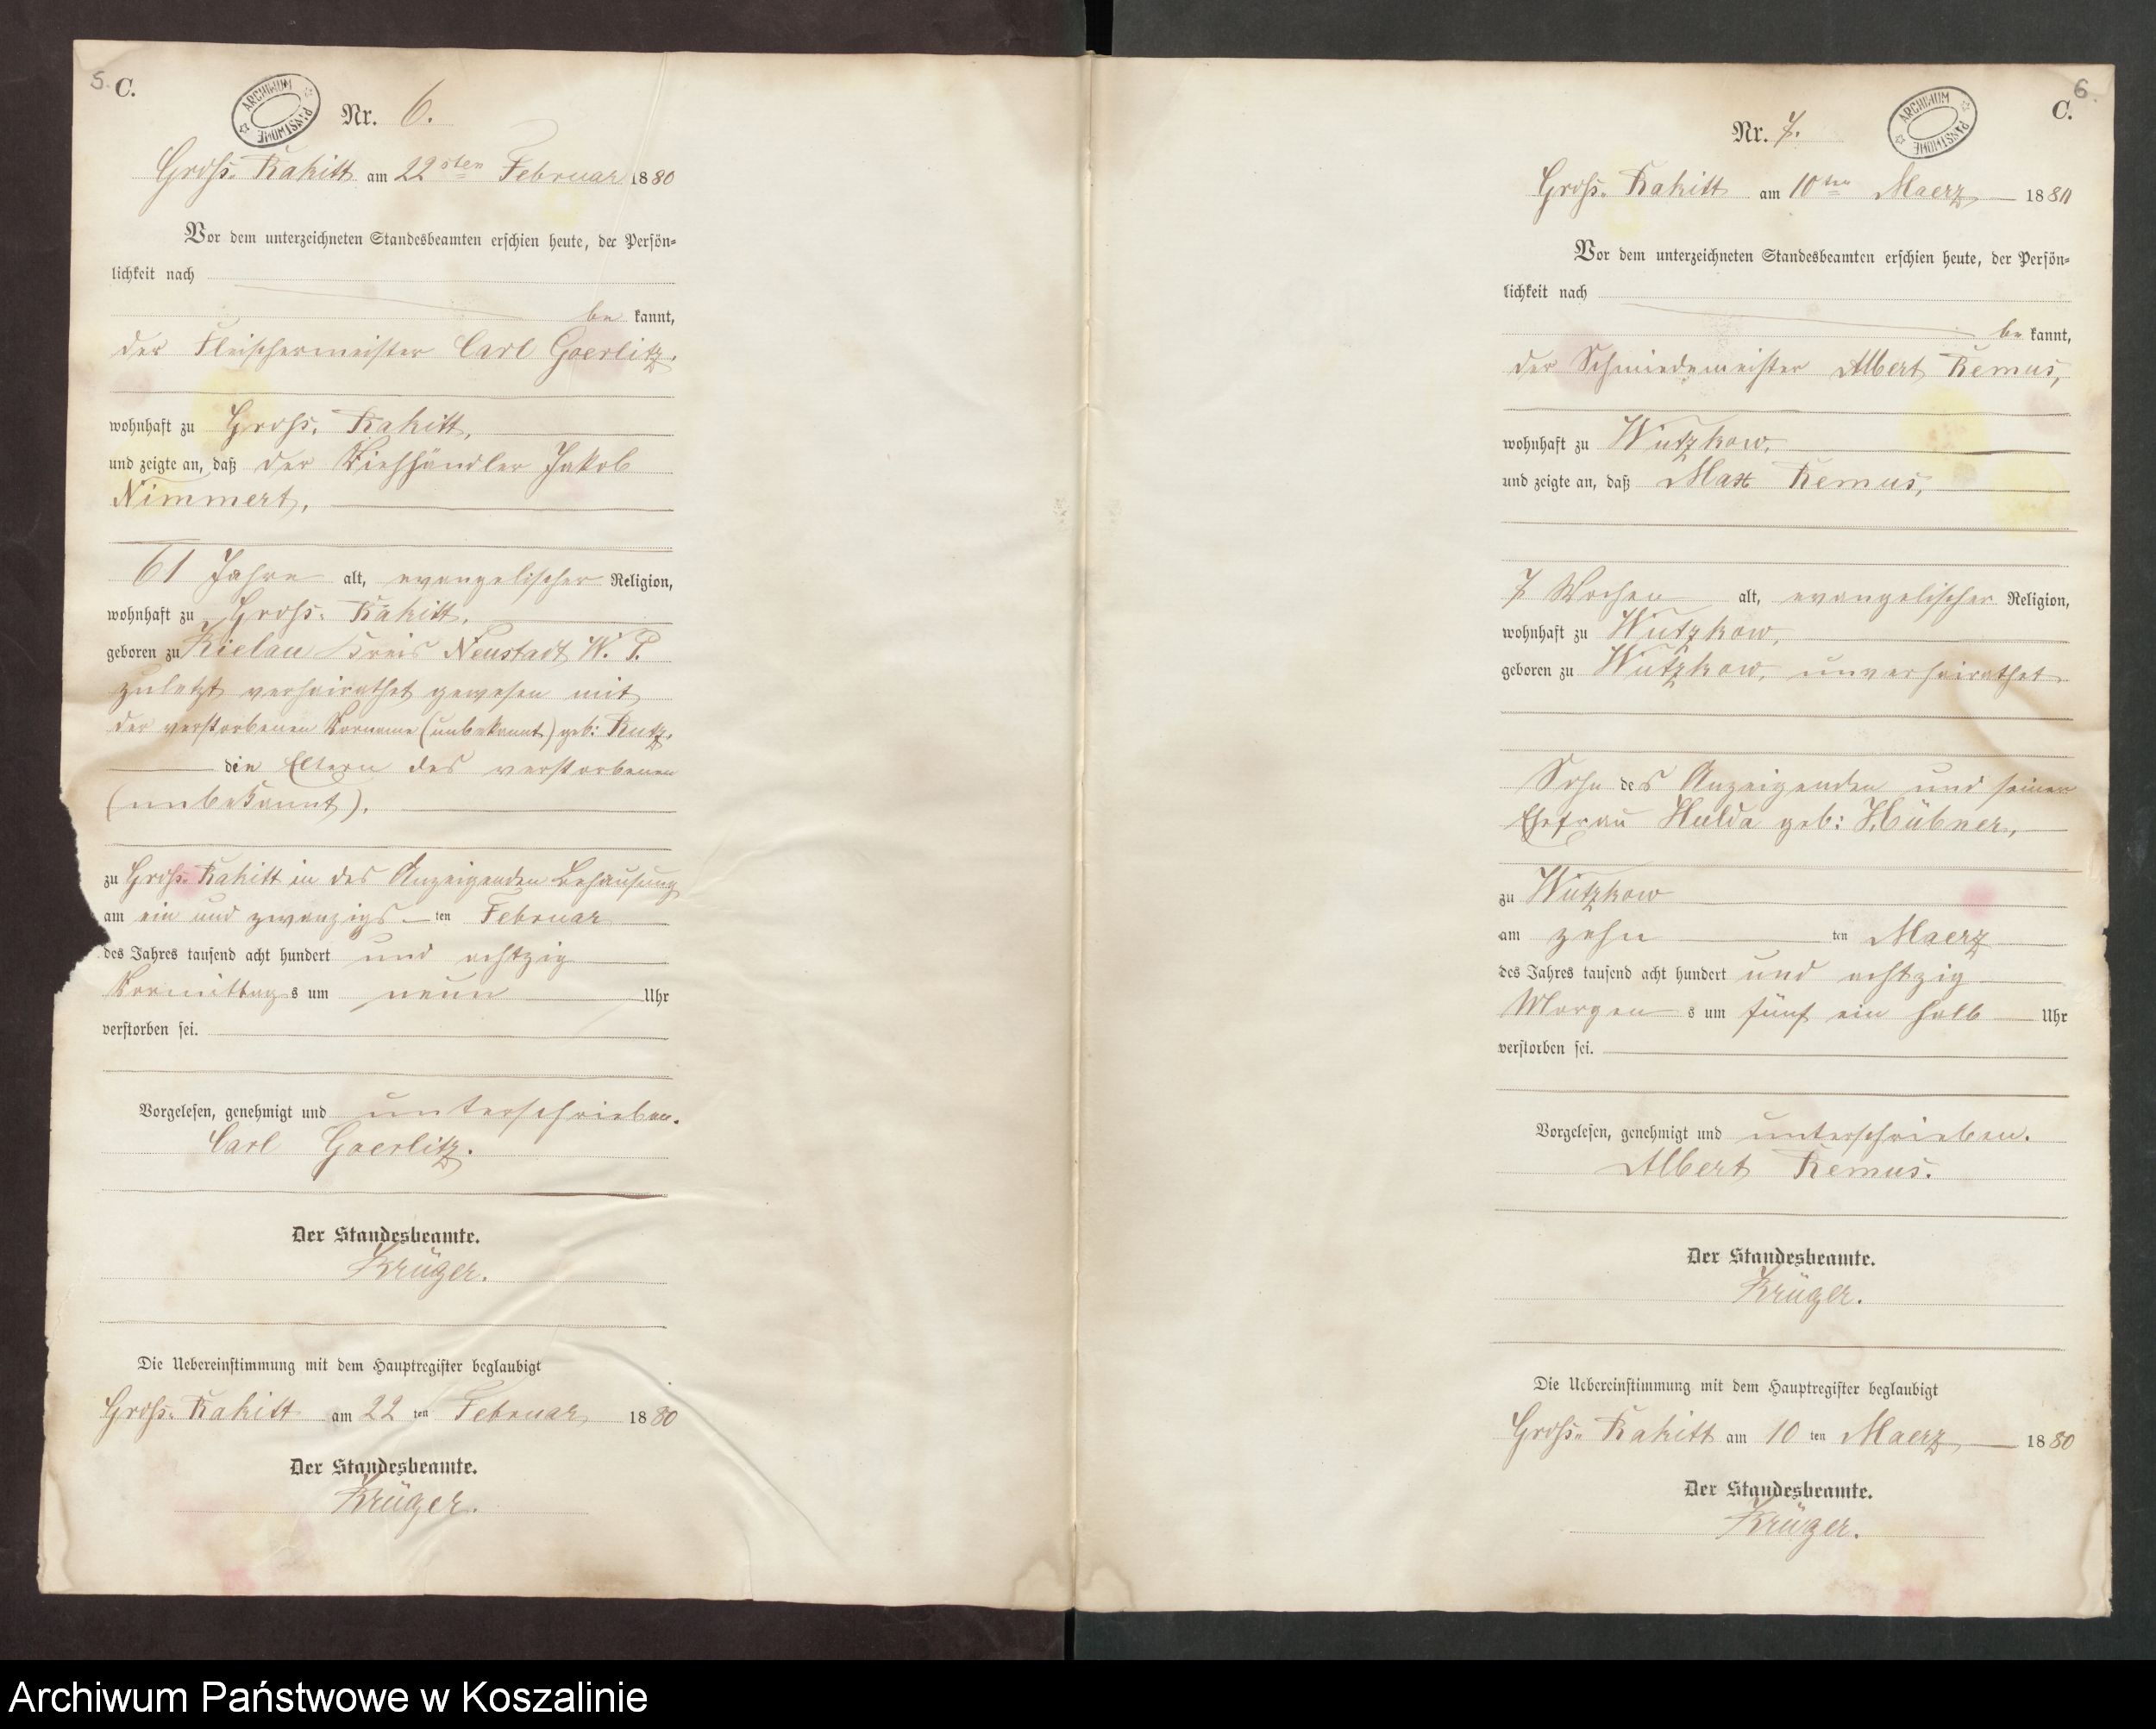 5. C.
ARCHIWUM PAŃSTWOWE
Nr. 6.
Groß. Rakitt am 22sten Februar 1880
Vor dem unterzeichneten Standesbeamten erschien heute, der Persön-
lichkeit nach
be kannt,
der Fleischermeister Carl Goerlitz,
wohnhaft zu Groß. Rakitt,
und zeigte an, daß der Viehhändler Jakob
Nimmert,
61 Jahre alt, evangelischer Religion,
wohnhaft zu Groß. Rakitt,
geboren zu Kielau Kreis Neustadt W. P.
zuletzt verheirathet gewesen mit
der verstorbenen Vorname (unbekannt) geb: Rutz,
die Eltern des verstorbenen
(unbekannt).
zu Groß. Rakitt in des Anzeigenden Behausung
am ein und zwanzigs ten Februar
des Jahres tausend acht hundert und achtzig
Vormittag s um neun Uhr
verstorben sei.
Vorgelesen, genehmigt und unterschrieben.
Carl Goerlitz.
Der Standesbeamte.
Krüger.
Die Uebereinstimmung mit dem Hauptregister beglaubigt
Groß. Rakitt am 22 ten Februar 1880
Der Standesbeamte.
Krüger.
6.
C.
ARCHIWUM PAŃSTWOWE
Nr. 7.
Groß. Rakitt am 10ten Maerz 1880
Vor dem unterzeichneten Standesbeamten erschien heute, der Persön-
lichkeit nach
be kannt,
der Schmiedemeister Albert Remus,
wohnhaft zu Wutzkow,
und zeigte an, daß Max Remus,
7 Wochen alt, evangelischer Religion,
wohnhaft zu Wutzkow,
geboren zu Wutzkow, unverheirathet
Sohn des Anzeigenden und seiner
Ehefrau Hulda geb: Hübner,
zu Wutzkow
am zehn ten Maerz
des Jahres tausend acht hundert und achtzig
Morgen s um fünf ein halb Uhr
verstorben sei.
Vorgelesen, genehmigt und unterschrieben.
Albert Remus.
Der Standesbeamte.
Krüger.
Die Uebereinstimmung mit dem Hauptregister beglaubigt
Groß. Rakitt am 10 ten Maerz 1880
Der Standesbeamte.
Krüger.
Archiwum Państwowe w Koszalinie